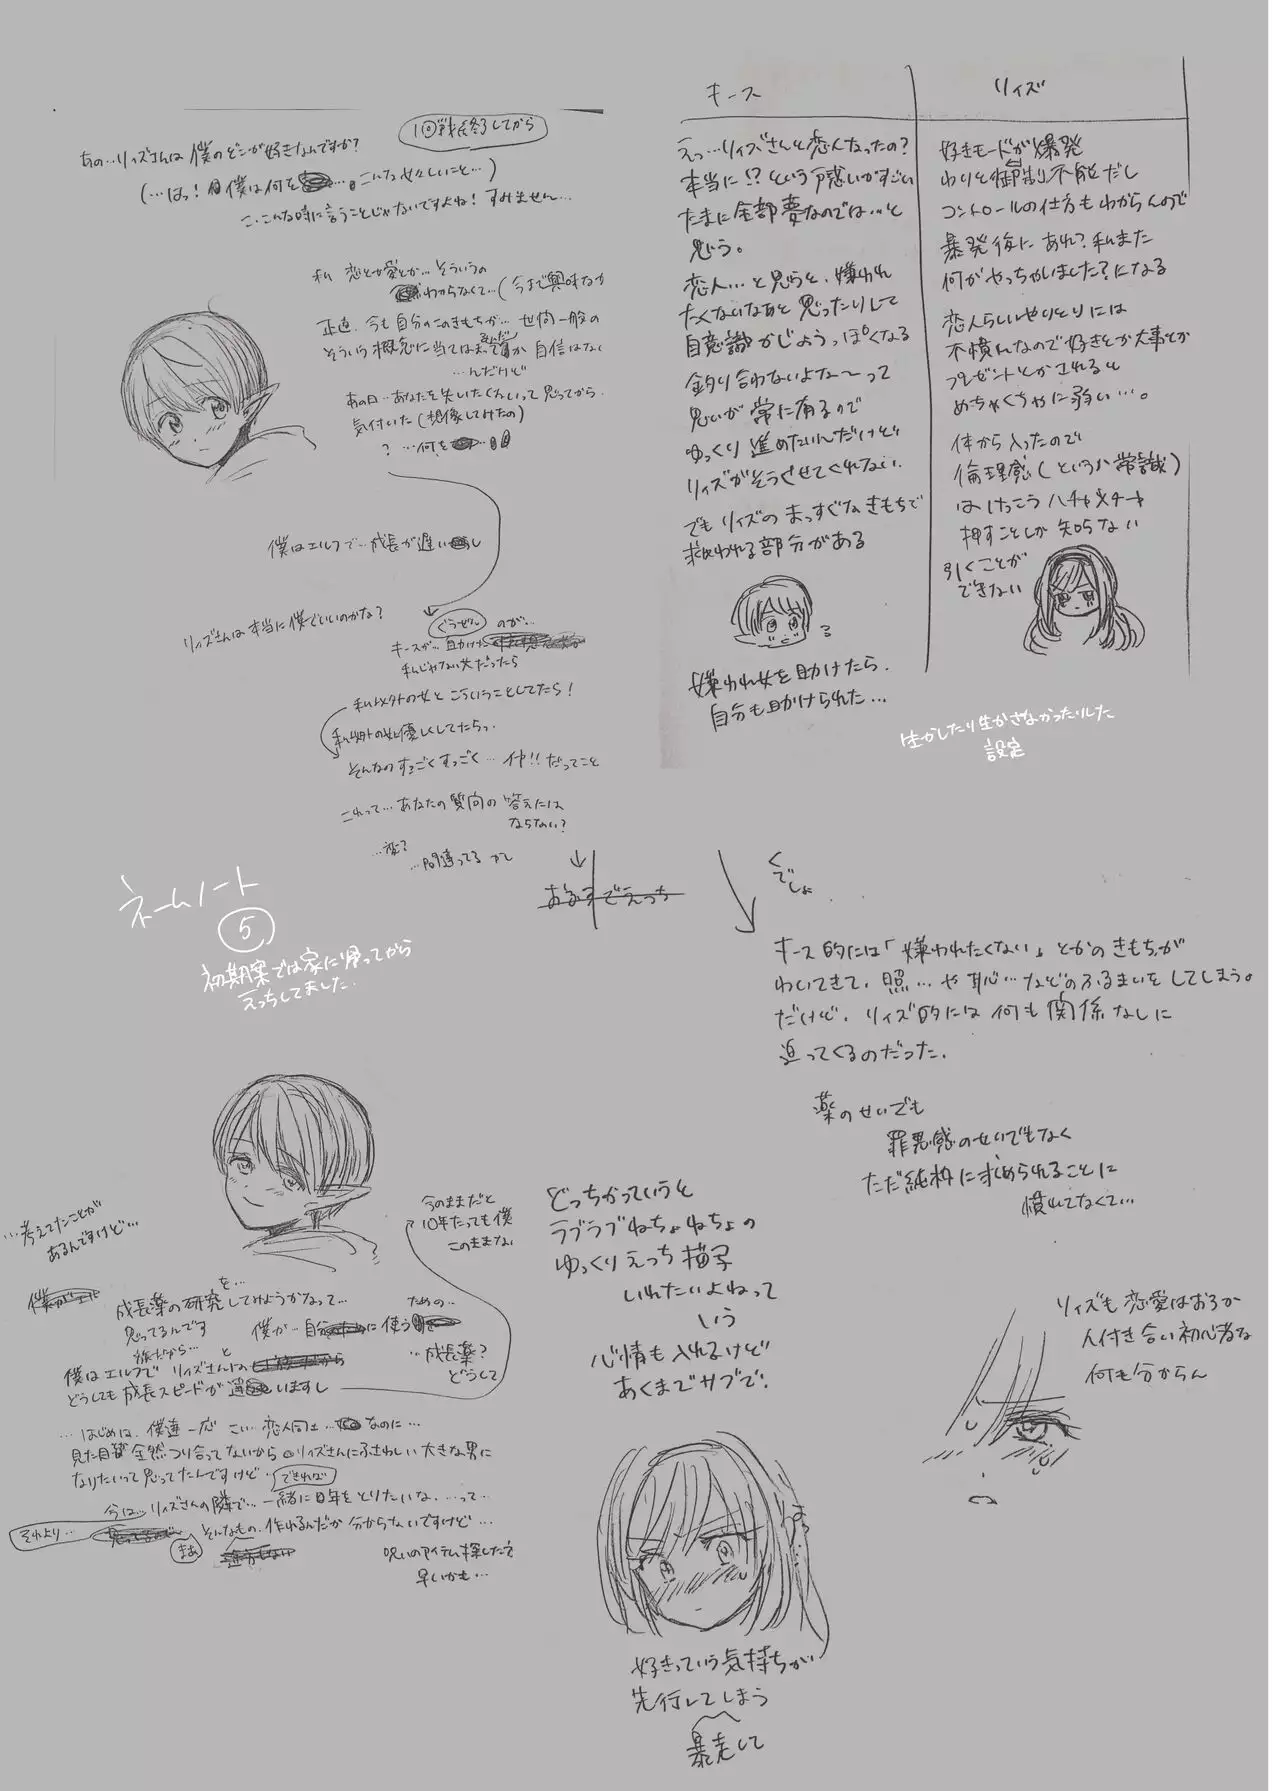 1回戦終了してから
あの…リィズさんは僕のどこが好きなんですか?
(…はっ!僕は何を…こんな女々しいこと…)
こ、こんな時に言うことじゃないですよね!すみません…
私 恋とか愛とか…そういうの
わからなくて…(今まで興味なか
正直、今も自分のこのきもちが…世間一般の
そういう概念に当てはまって か 自信はなく
…んだけど
あの日…あなたを失いたくないって思ってから
気付いた(想像してみたの)
? …何を
僕はエルフで…成長が遅いし
リィズさんは本当に僕でいいのかな?
ぐうぜん のが…
キースが…助けた
私じゃない女だったら
私以外の女とこういうことしてたら!
私以外の女に優しくしてたらっ
そんなのすっごくすっごく…イヤ!!だってこと
これって…あなたの質問の答えには
ならない?
…変?
…間違ってる かて
キース
えっ…リィズさんと恋人なったの?
本当に!?という戸惑いがすごい
たまに全部夢なのでは…と
思う。
恋人…と思うと、嫌われ
たくないなあと思ったりして
自意識かじょうっぽくなる
釣り合わないよな〜って
思いが常に有るので
ゆっくり進めたいんだけど
リィズがそうさせてくれない
でもリィズのまっすぐなきもちで
救われる部分がある
嫌われ女を助けたら
自分も助けられた…
リィズ
好きモードが爆発
わりと御制不能だし
コントロールの仕方もわからんので
暴発後に あれ?私また
何かやっちゃいました?になる
恋人らしいやりとりには
不慣れなので好きとか大事とか
プレゼントとかされると
めちゃくちゃに弱い…。
体から入ったので
倫理感(というか常識)
はけっこうハチャメチャ
押すことしか知らない
引くことが
できない
生かしたり生かさなかったりした
設定
ネームノート
5
初期案では家に帰ってから
えっちしてました
おるすでえっち
くでしょ
キース的には「嫌われたくない」とかのきもちが
わいてきて、照…や恥…などのふるまいをしてしまう。
だけど、リィズ的には何も関係なしに
迫ってくるのだった。
薬のせいでも
罪悪感のせいでもなく
ただ純粋に求められることに
慣れてなくて…
どっちかっていうと
ラブラブねちょねちょの
ゆっくりえっち描写
いれたいよねって
いう
心情も入れるけど
あくまでサブで。
リィズも恋愛はおろか
人付き合い初心者な
何も分からん
…考えてたことが
あるんですけど…
今のままだと
10年たっても僕
このままな
を…
成長薬の研究してみようかなって…
思ってるんです
僕が…自分に使う
ための…
…成長薬?
どうして
旅だから… と
僕はエルフで リィズさんは
どうしても成長スピードが違いますし
…はじめは、僕達一応 こい…恋人同士…なのに…
見た目が全然つり合ってないからリィズさんにふさわしい大きな男に
なりたいって思ってたんですけど…
できれば
今は…リィズさんの隣で…一緒に年をとりたいな…って…
それより…
まあ
そんなもの、作れるんだか分からないですけど…
呪いのアイテム探した方
早いかも…
好きっていう気持ちが
先行してしまう
暴走して